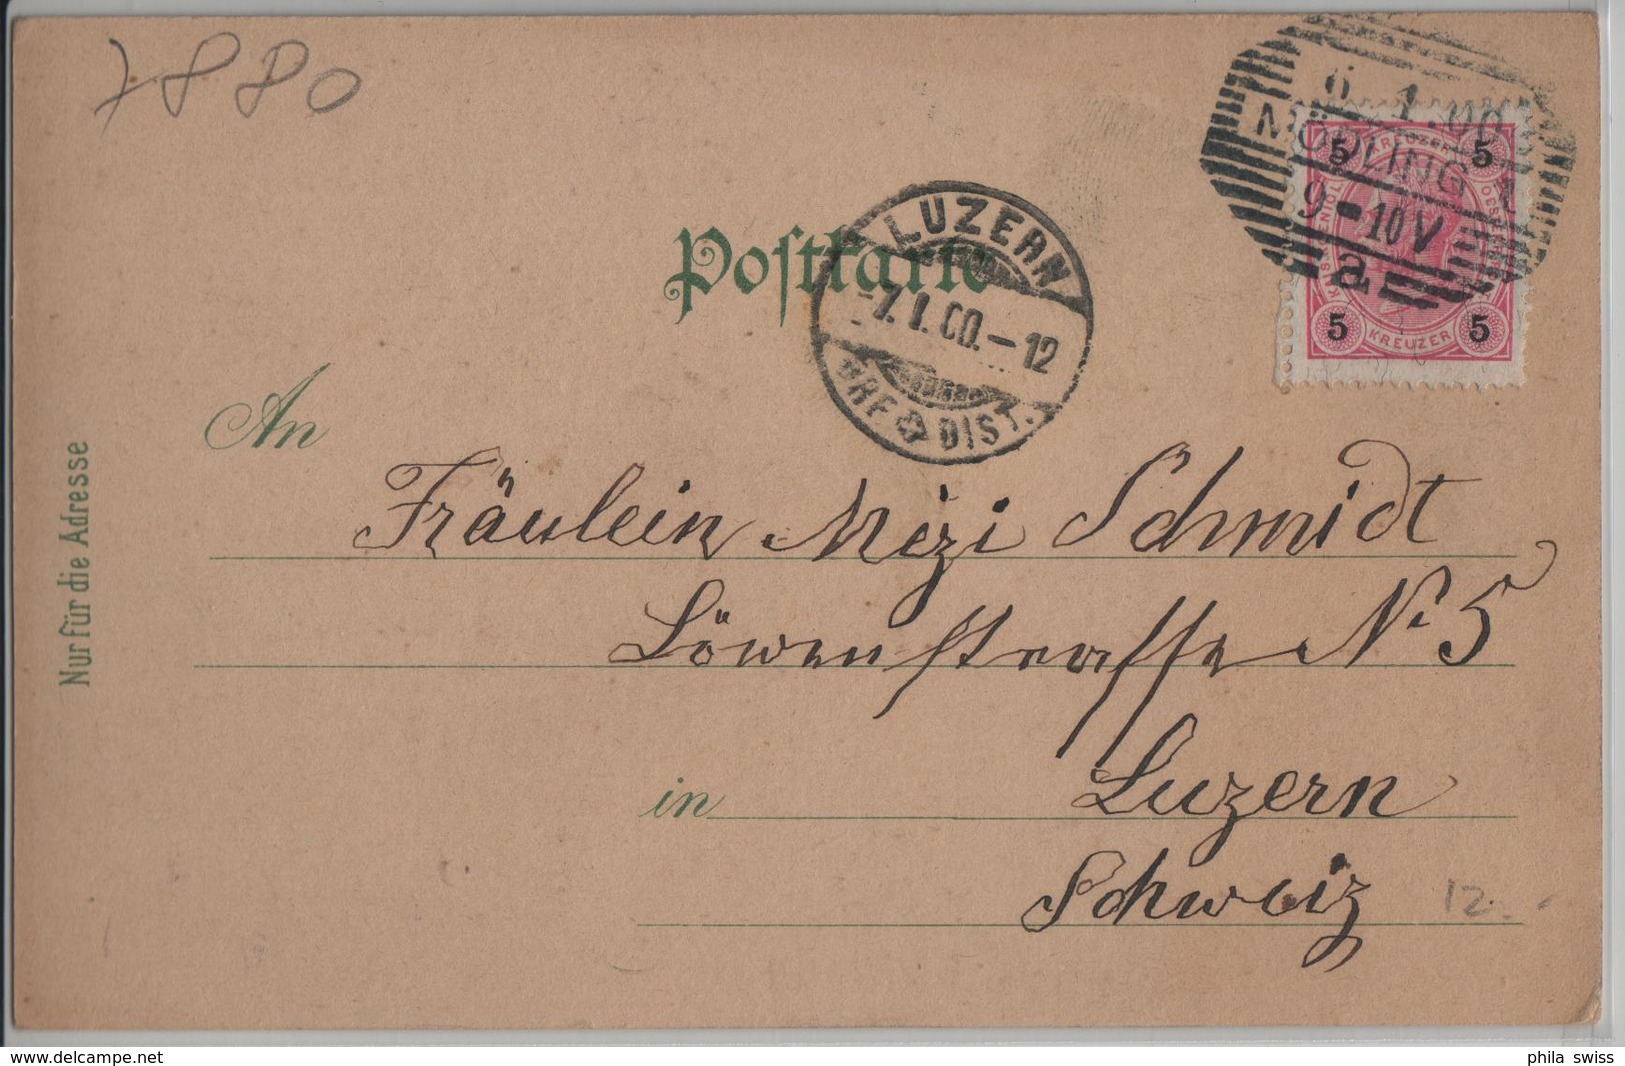 7880
6 1.00
MÖDLING 1
9-10V
a
5 KREUZER 5
5 KREUZER 5
LUZERN
-7.I.00.-12
BRF DIST.
Postkarte
An
Fräulein Mizi Schmidt
Löwenstrasse No 5
in Luzern
Schweiz
12.-
Nur für die Adresse
delcampe.net
phila_swiss